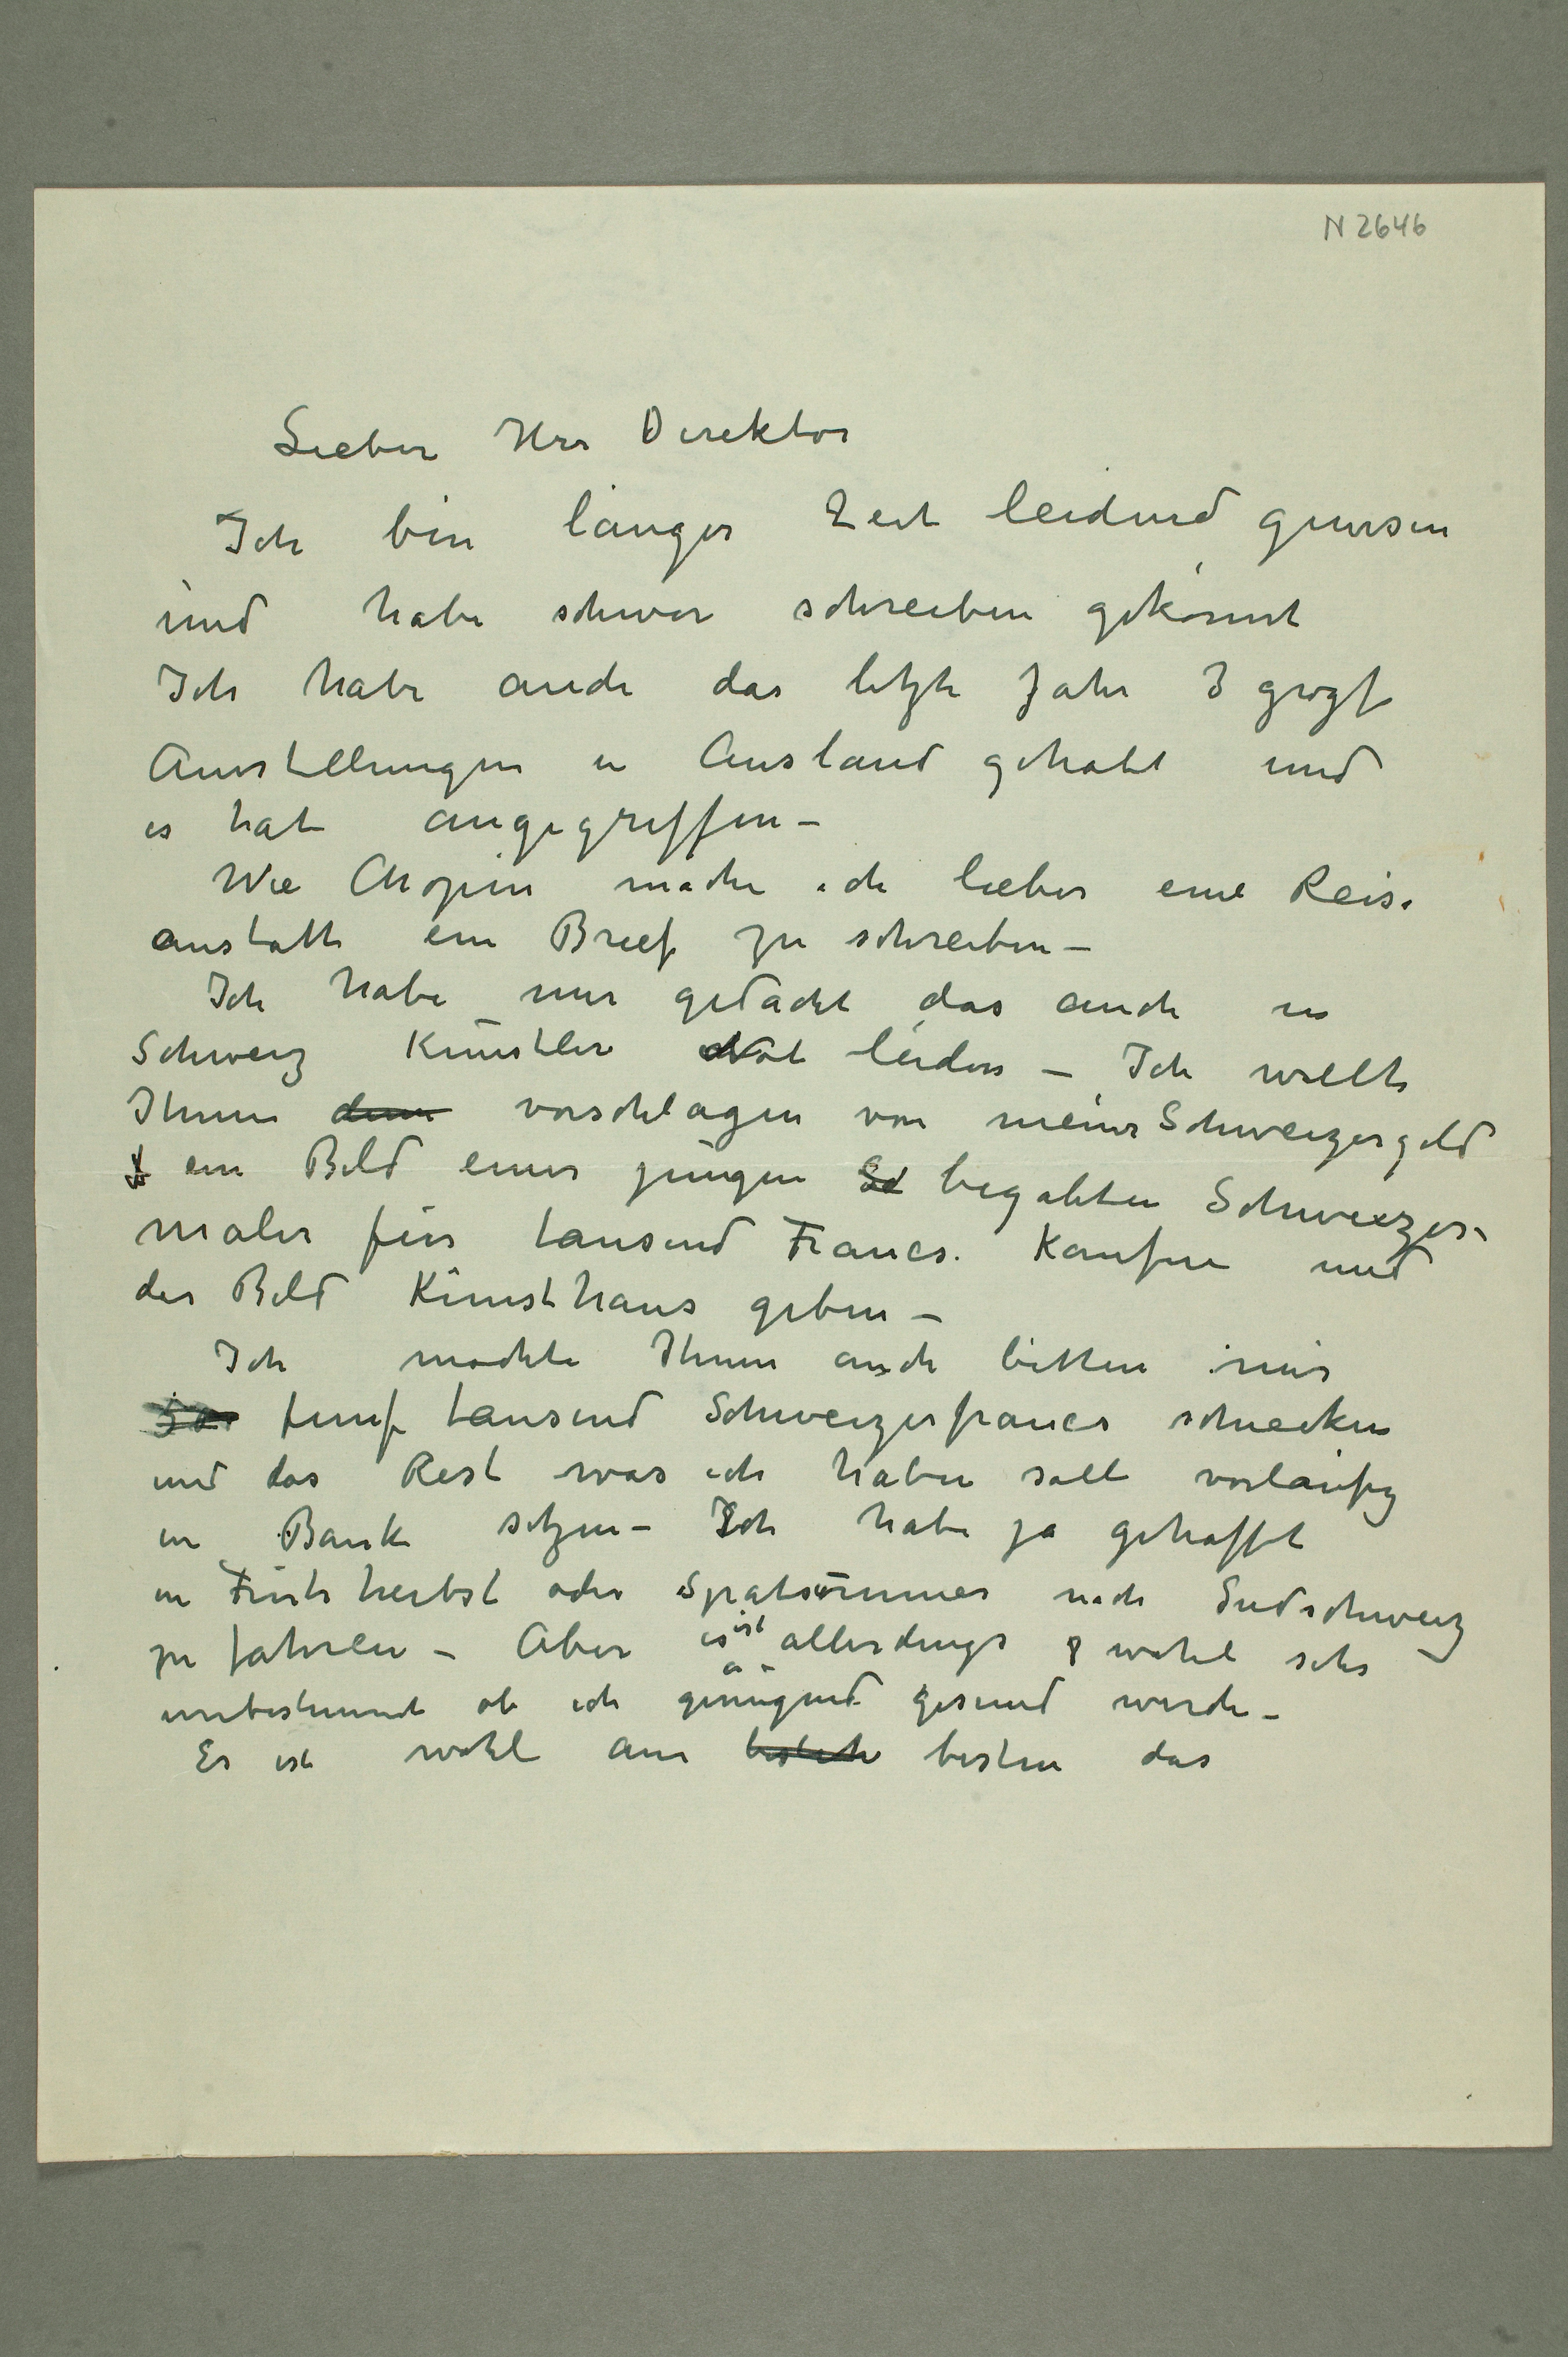 N 2646
Lieber Herr Direktor
Ich bin länger Zeit leidend gewesen
und habe schwer schreiben gekonnt
Ich habe auch das letzte Jahr 3 grozse
Ausstellungen in Ausland gehabt und
es hat angegriffen –
Wie Chopin mache ich lieber eine Reise
anstatt ein Brief zu schreiben –
Ich habe mir gedacht das auch in
Schweiz Künstler Not leiden – Ich wollte
Ihnen denn vorschlagen von meiner Schweizergeld
ein Bild einer jungen Sc begabten Schweizer-
maler für tausend Francs. Kaufen und
der Bild Kunsthaus geben –
Ich mochte Ihnen auch bitten mir
fünf tausend Schweizerfrancs schicken
und das Rest was ich haben soll vorläufig
in Bank setzen – Ich habe ja gehofft
in Früh herbst oder Spätsommer nach Sudschweiz
zu fahren – Aber es ist allerdings wohl sehr
unbestimmt ob ich genügend gesund werde –
Es ist wohl am besten das